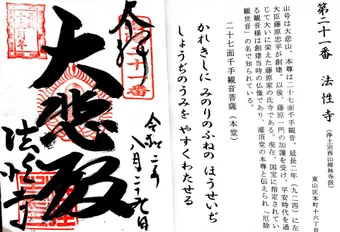 第二十一番 法性寺(浄土宗西山禅林寺派)
東山区本町十六丁目
山号は大悲山、本尊は二十七面千手観音。延長二年(九二四)に左
大臣藤原忠平が創建、以後、藤原一門の加護を受け、平安時代を通
じて大いに栄えた藤原家の氏寺である。現在、国宝に指定されてい
る観音様は創建当時の仏像であり、灌頂堂の本尊と伝えられ「厄除
観世音」の名で知られている。
二十七面千手観音菩薩(本堂)
かれきしに みのりのふねの ほうせいぢ
しょうぢのうみを やすくわたせる
奉拝
二十一番
大悲殿
法性寺
令和二年
八月二十九日